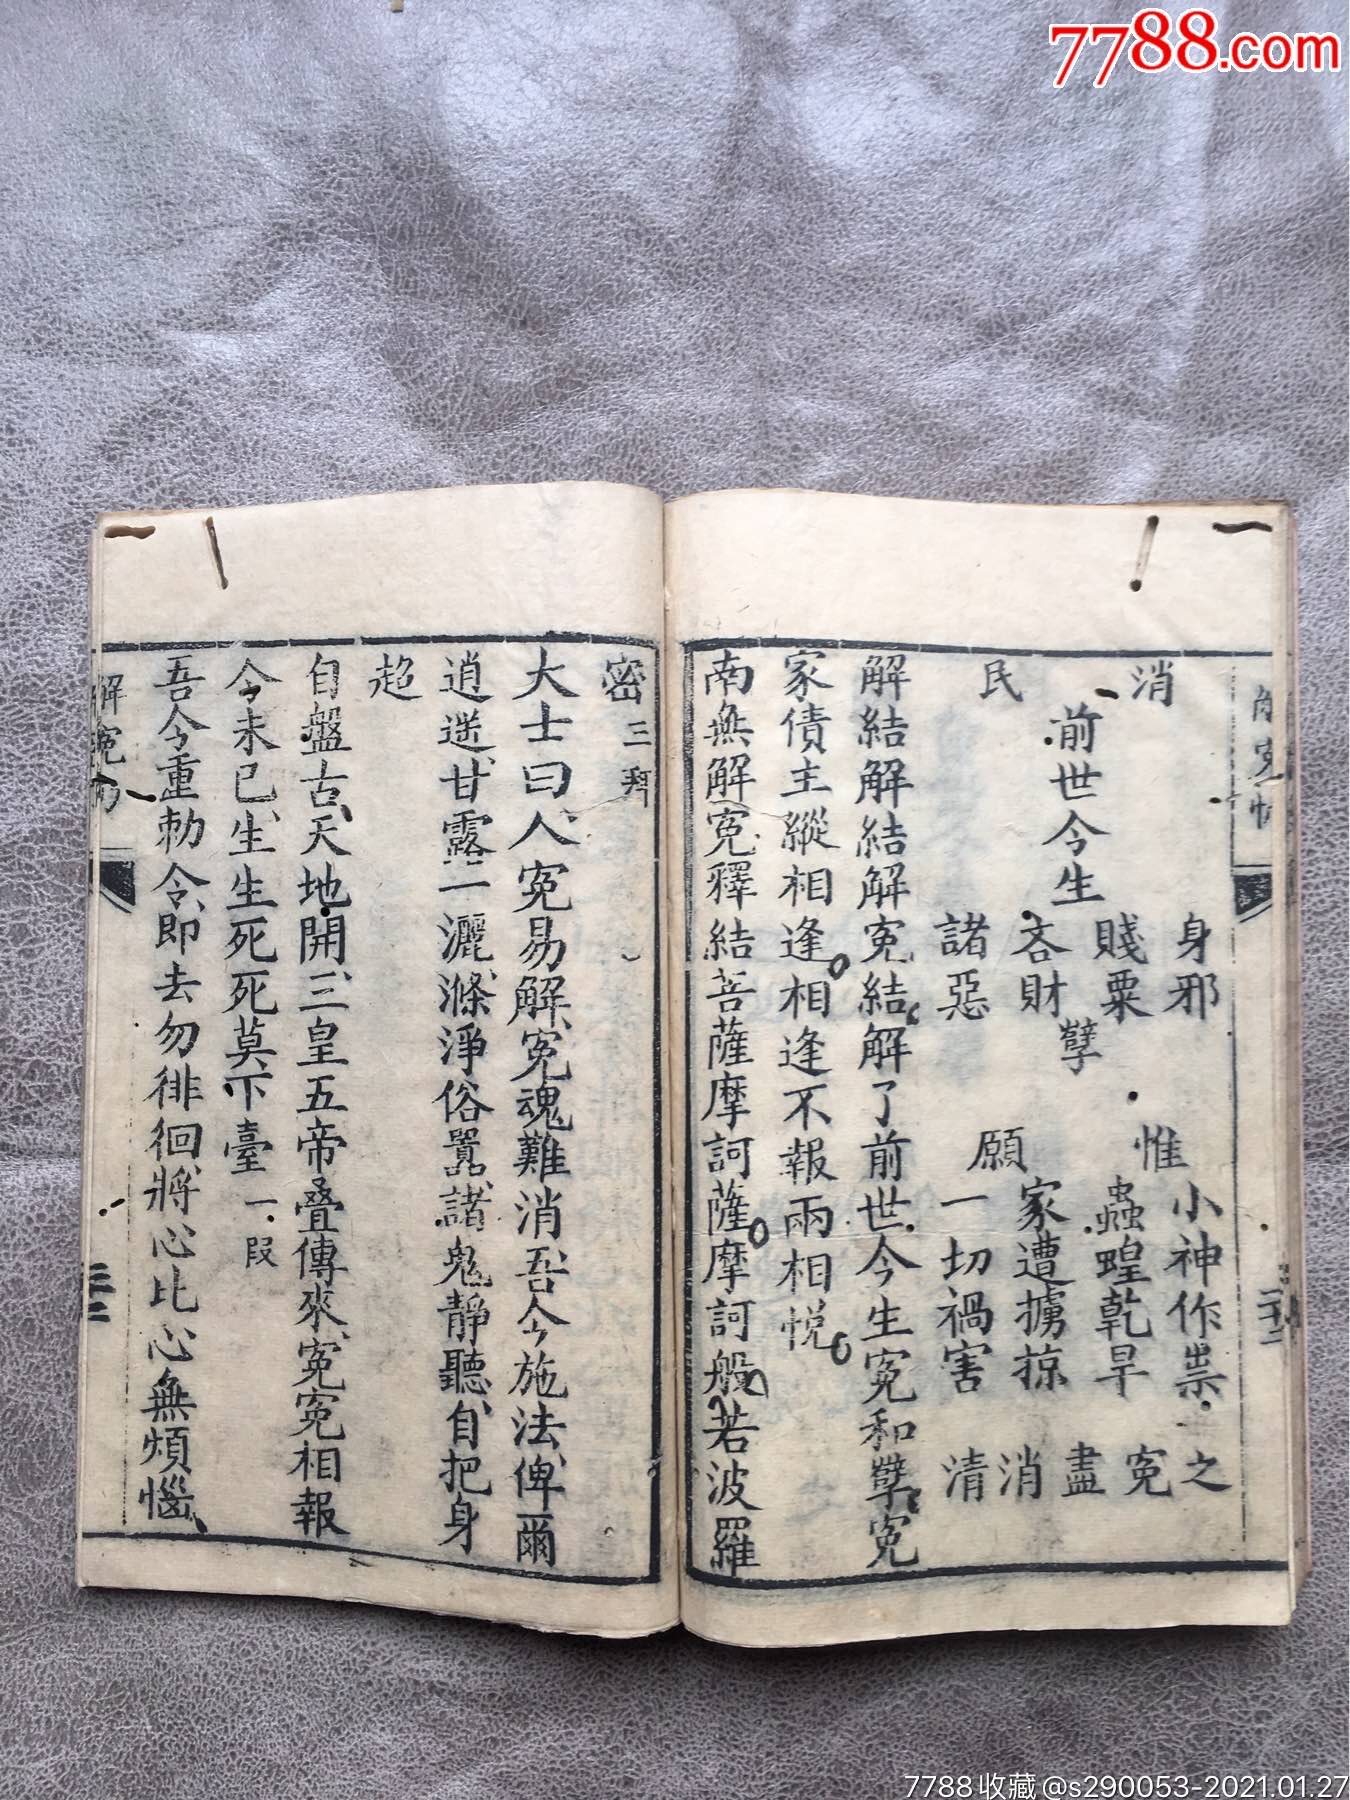 7788.com
消　惟
身邪　小神作祟　之
賤粟　蟲蝗乾旱　冤
前世今生　孽　盡
吝財　家遭擄掠　消
民　願
諸惡　一切禍害　清
解結解結解冤結解了前世今生冤和孽冤
家債主縱相逢相逢不報兩相悅
南無解冤釋結菩薩摩訶薩摩訶般若波羅
密三拜
大士曰人冤易解冤魂難消吾今施法俾爾
逍遥甘露二灑滌淨俗囂諸鬼靜聽自把身
超
自盤古天地開三皇五帝疊傳來冤冤相報
今未已生生死死莫下臺一段
吾今重勅令即去勿徘徊將心比心無煩惱
解冤
7788收藏@s290053-2021.01.27